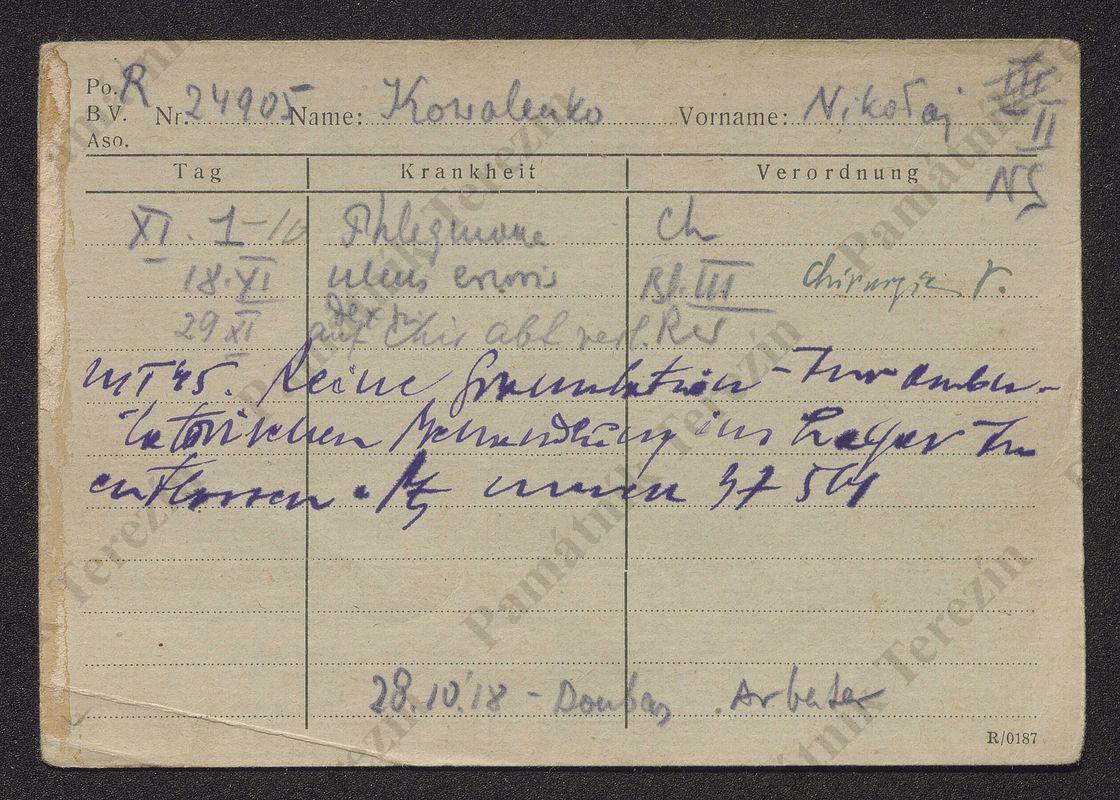 Po. R
B V. Nr. 24905 Name: Kowalenko Vorname: Nikołaj III
Aso. II
Tag Krankheit Verordnung NS
XI. 1 Phlegmone Ch
18. XI ulcus cruris Bl. III Chirurgia
dextri
29 XI auf Chir abt verl. Rev
I 45. Reine Granulation - Zur ambu-
latorischen Behandlung ins Lager zu
entlassen.
28.10.'18 - Donbas Arbeiter
R/0187
Památník Terezín